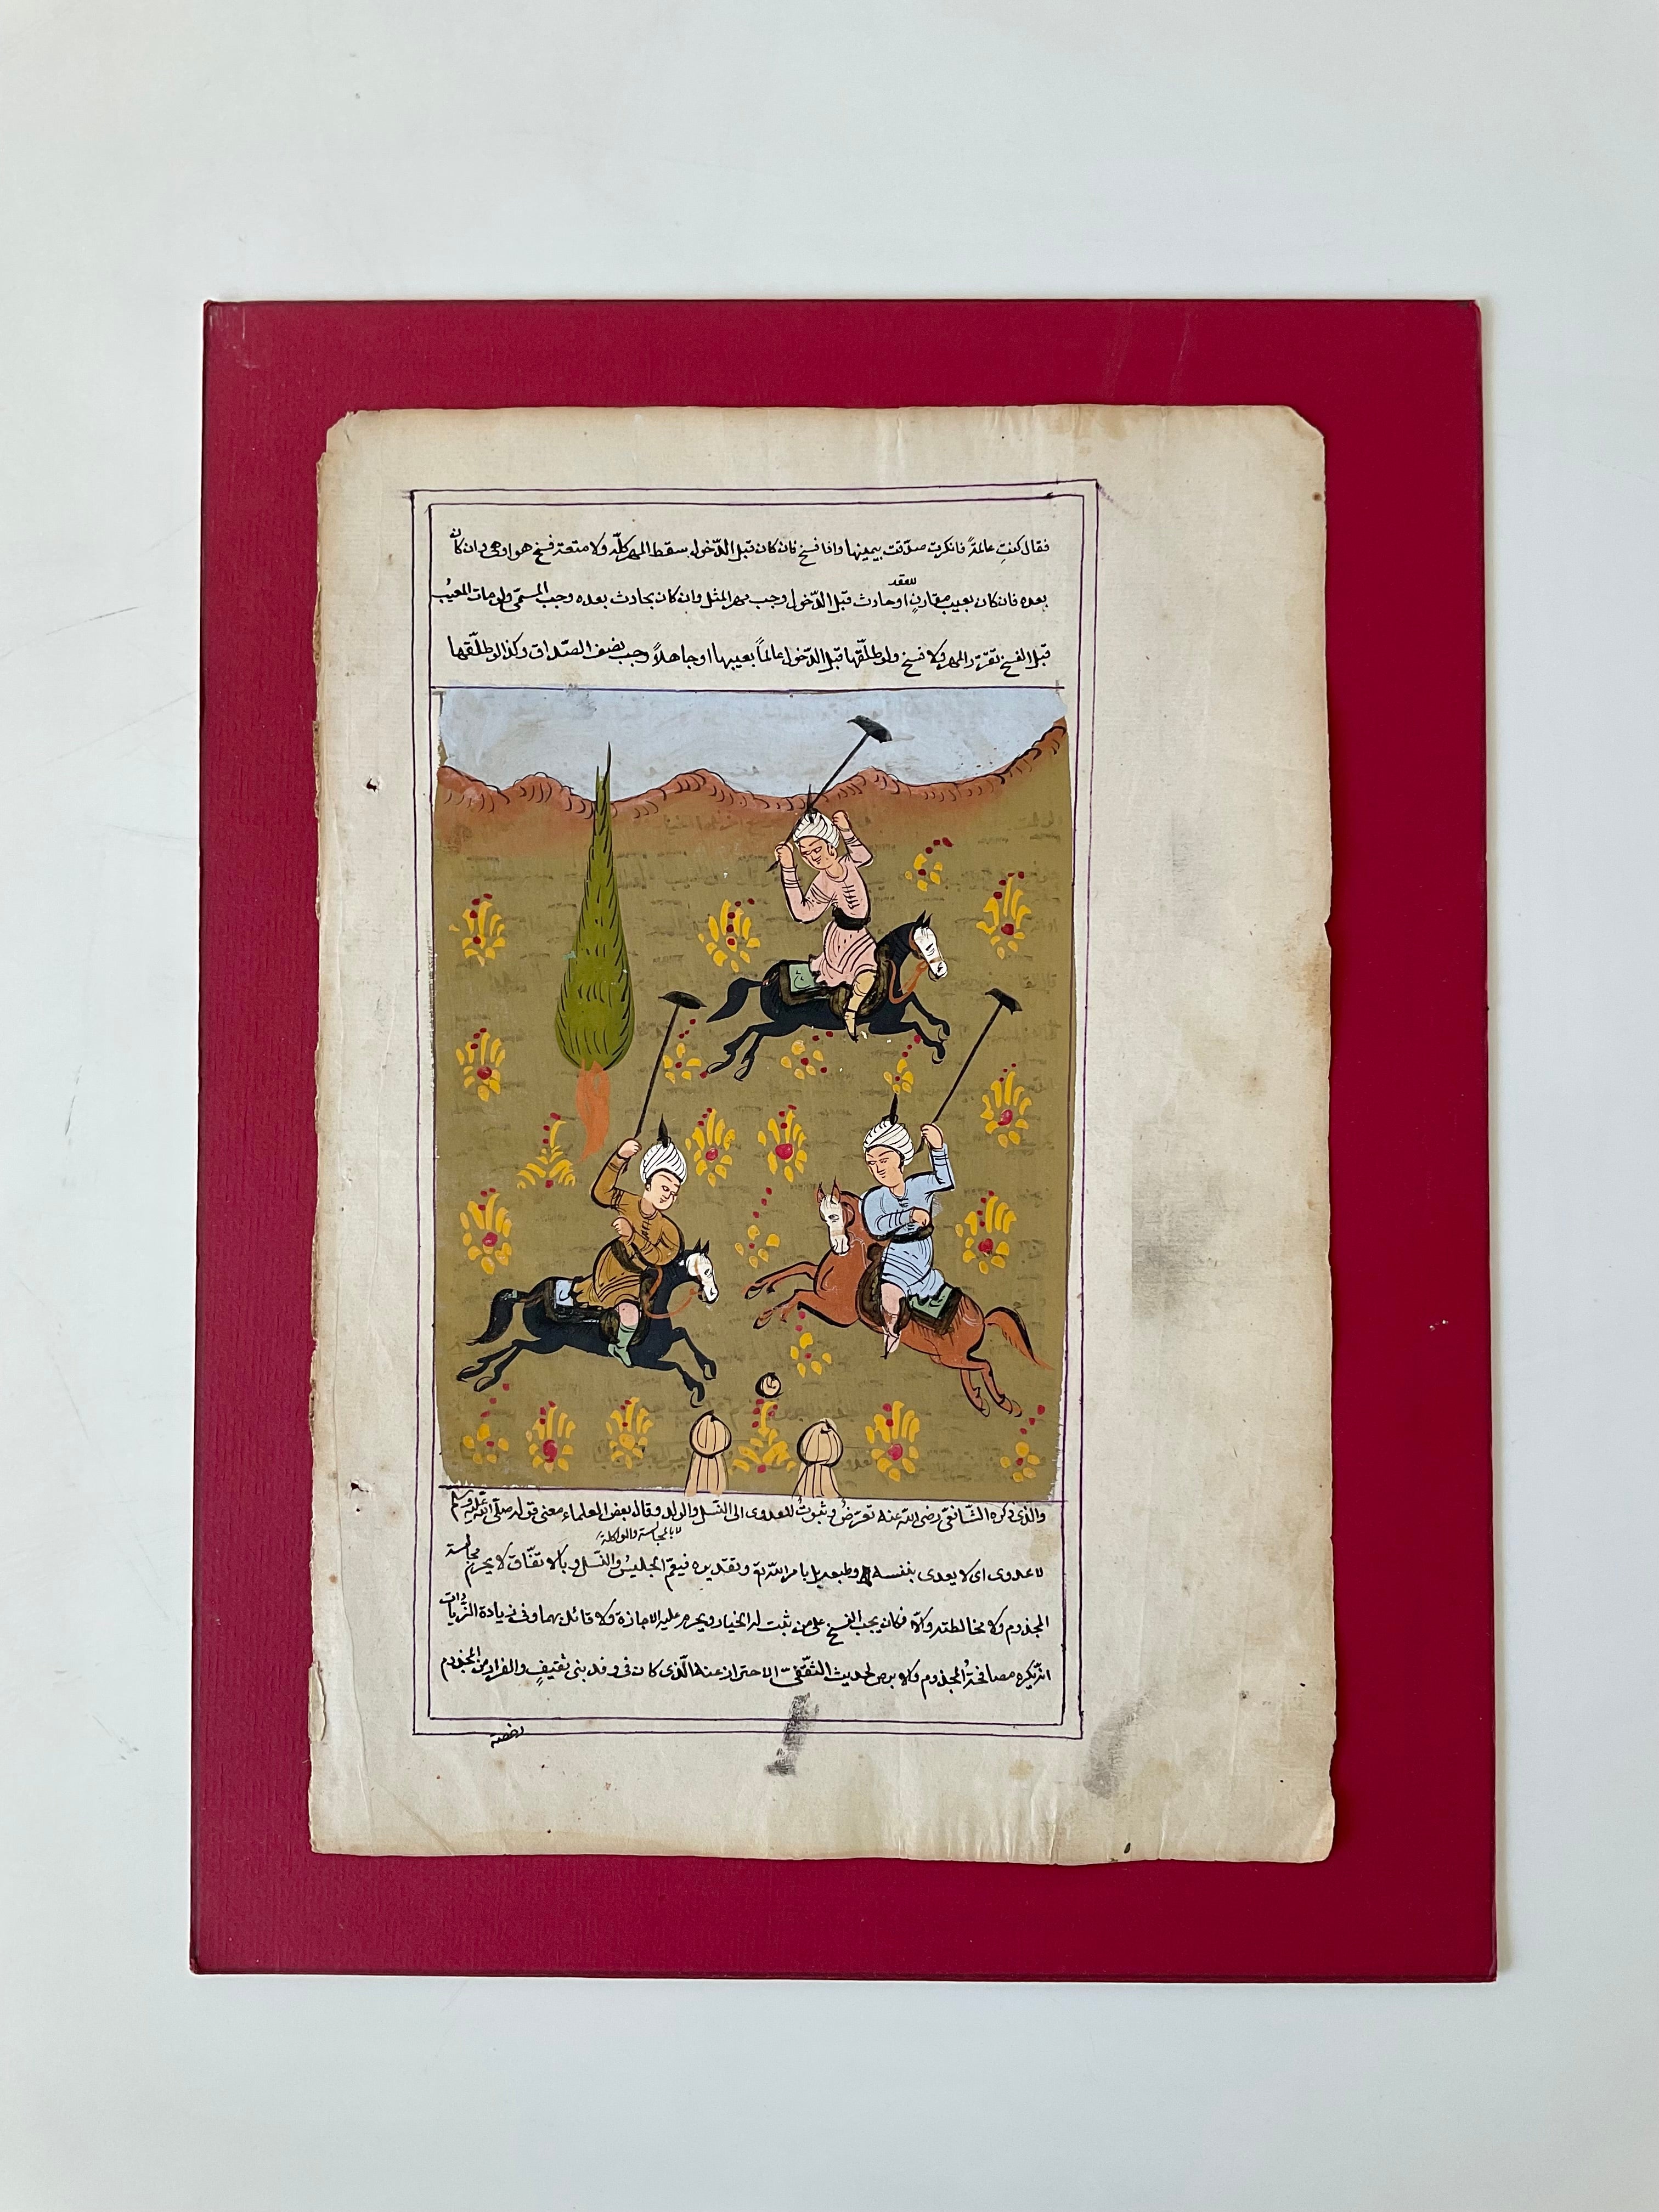 فقال كنتِ عالمةً فانكرت صدّقت بيمينها واذا فسخ فان كان قبل الدّخول سقط المهر كلّه ولا متعة فسخ هو او هي وان كان
بعده فان كان بعيب مقارنٍ للعقد او حادث قبل الدّخول وجب مهر المثل وان كان بحادث بعده وجب المسمّى ولو مات المعيبُ
قبل الفسخ تقرّر المهر ولا فسخ ولو طلّقها قبل الدّخول عالماً بعيبها او جاهلاً وجب نصف الصّداق وكذا لو طلّقها
والذى ذكره الشّافعى رضى اللّه عنه تعرّضٌ وثبوتٌ للعدوى الى النّسل والولد وقال بعض العلماء معنى قوله صلّى اللّه عليه وسلم
لا عدوى اى لا يعدى بنفسه وطبعه بل بامر اللّه تع وتقديره فيعمّ الجليس والنّسل وبالاتّفاق لا يحرم مجالسة
لا بالمجالسة والمواكلة
المجذوم ولا مخالطته والّا فكان يجب الفسخ على من ثبت له الخيار ويحرم عليه الاجازة ولا قائل بهما وفى زيادة الزّيادات
انّ يكره مصافحةُ المجذوم ولابرص لحديث الثّقفىّ الاحتراز عنه الّذى كان فى وفد بنى ثقيفٍ والفرار من المجذوم